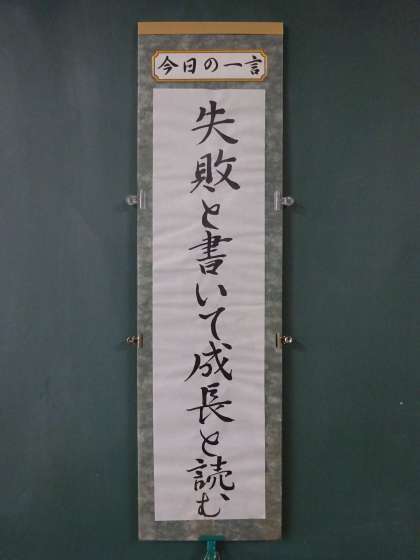 今日の一言
失敗と書いて成長と読む